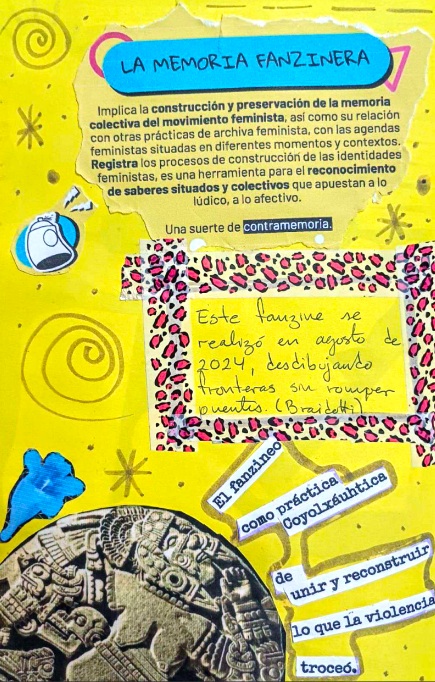 LA MEMORIA FANZINERA
Implica la construcción y preservación de la memoria
colectiva del movimiento feminista, así como su relación
con otras prácticas de archiva feminista, con las agendas
feministas situadas en diferentes momentos y contextos.
Registra los procesos de construcción de las identidades
feministas, es una herramienta para el reconocimiento
de saberes situados y colectivos que apuestan a lo
lúdico, a lo afectivo.
Una suerte de contramemoria.
Este fanzine se
realizó en agosto de
2024, desdibujando
fronteras sin romper
puentes. (Braidotti)
El fanzineo
como práctica
Coyolxáuhtica
de
unir y reconstruir
lo que la violencia
troceó.